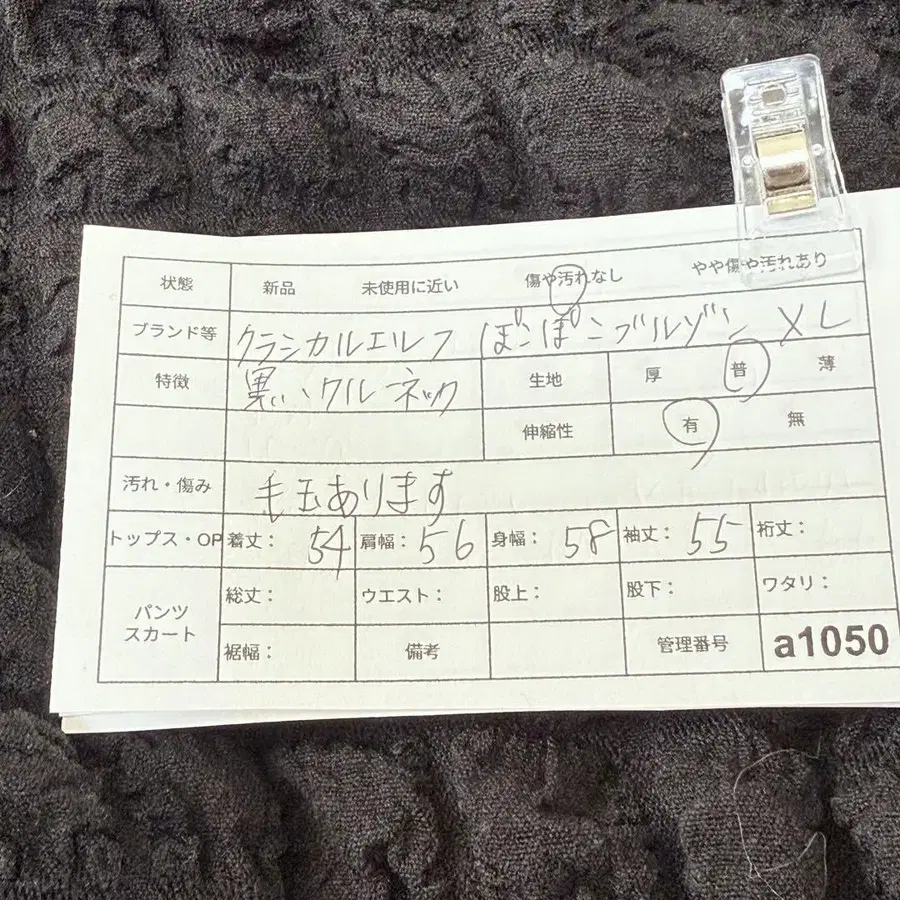 状態 新品 未使用に近い 傷や汚れなし やや傷や汚れあり
ブランド等 クラシカルエルフ ぽこぽこブルゾン XL
特徴 黒、クルーネック 生地 厚 普 薄
伸縮性 有 無
汚れ・傷み 毛玉あります
トップス・OP 着丈: 54 肩幅: 56 身幅: 58 袖丈: 55 裄丈:
パンツ スカート 総丈: ウエスト: 股上: 股下: ワタリ:
裾幅: 備考 管理番号 a1050